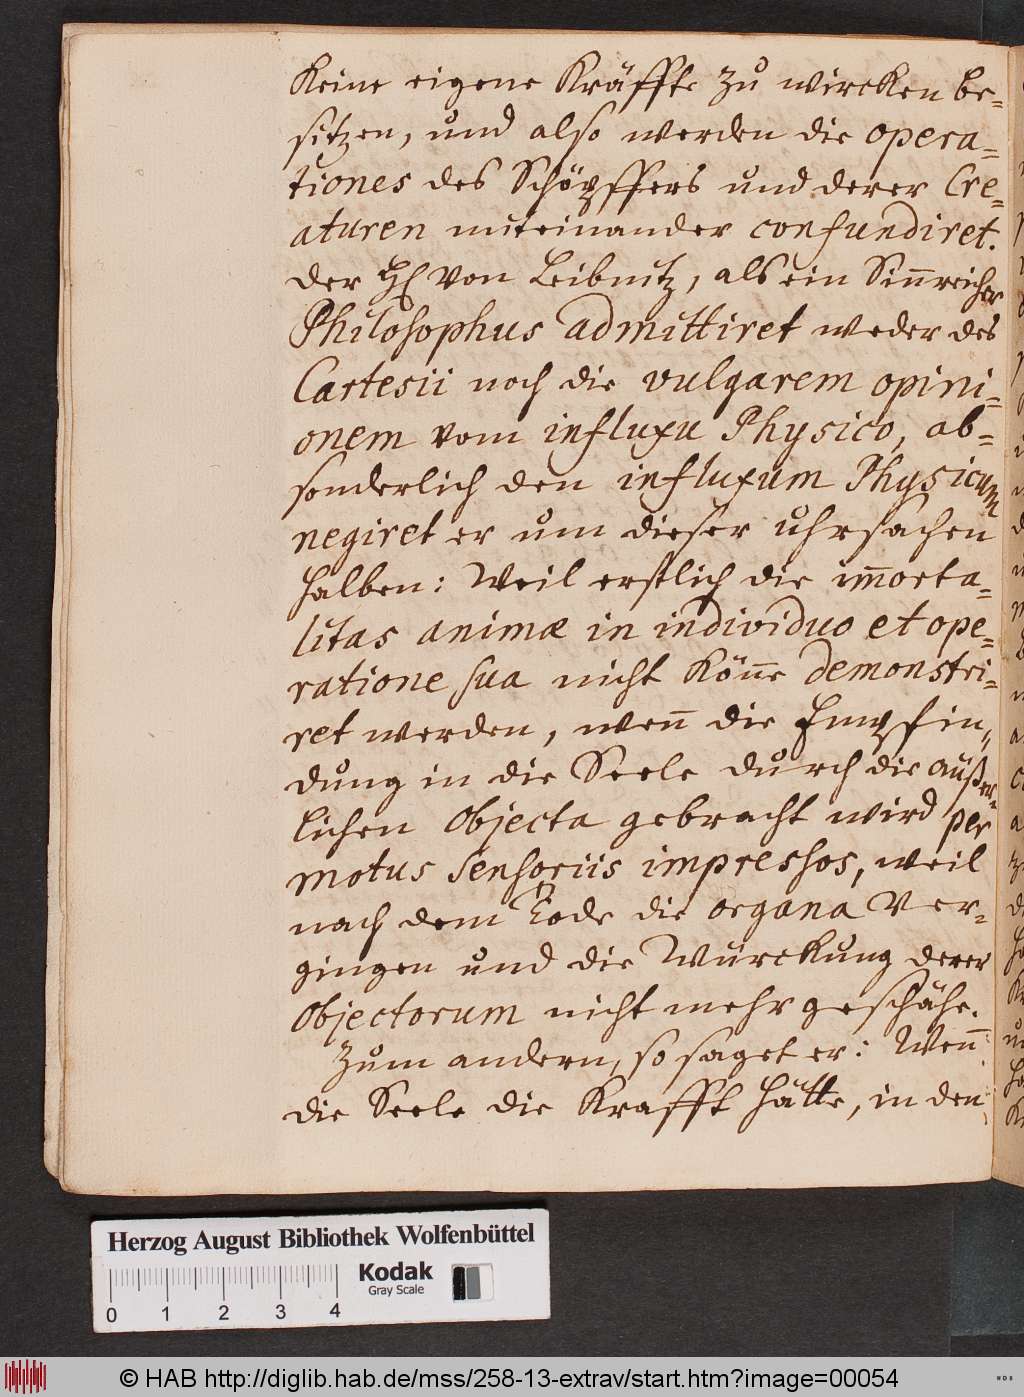 Keine eigene Kräffte zu wircken be-
sitzen, und also werden die opera-
tiones des Schöpffers und derer Cre-
aturen miteinander confundiret.
der H von Leibnitz, als ein Siñreicher
Philosophus admittiret weder des
Cartesii noch die vulgarem opini-
onem vom influxu Physico, ab-
sonderlich den influxum Physicum
negiret er um dieser uhrsachen
halben: Weil erstlich die im̃orta-
litas animæ in individuo et ope-
ratione sua nicht Kön̄e demonstri-
ret werden, weñ die Empfin-
dung in die Seele durch die äußer-
lichen Objecta gebracht wird per
motus sensoriis impressos, weil
nach dem Tode die organa ver-
gingen und die Würckung derer
Objectorum nicht mehr geschähe.
Zum andern, so saget er: Weñ
die Seele die Krafft hätte, in den
Herzog August Bibliothek Wolfenbüttel
Kodak
Gray Scale
0 1 2 3 4
© HAB http://diglib.hab.de/mss/258-13-extrav/start.htm?image=00054